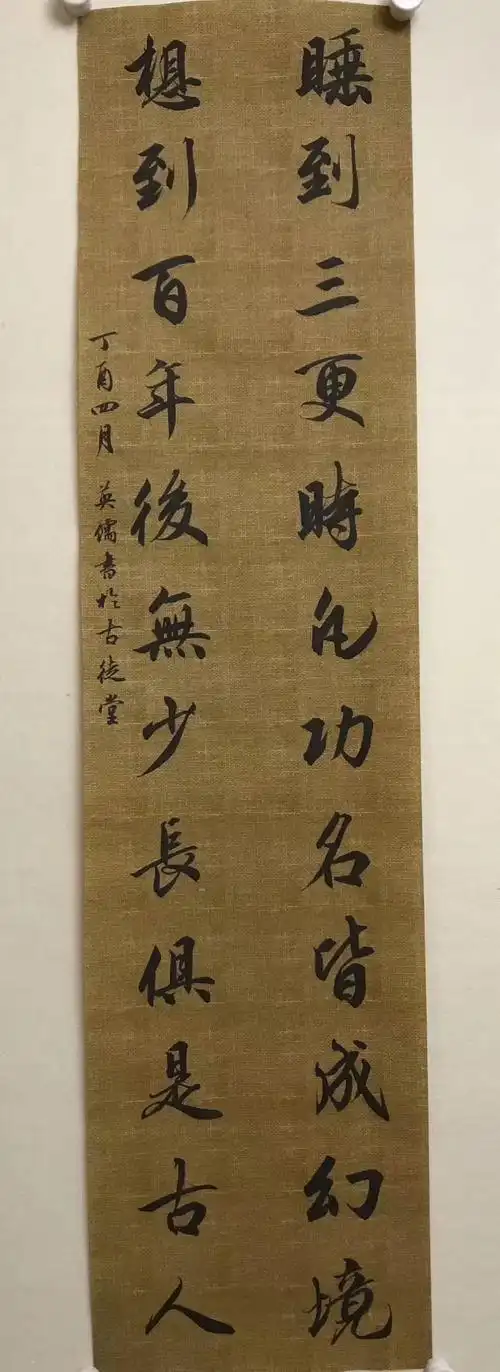 睡到三更時凡功名皆成幻境
想到百年後無少長俱是古人
丁酉四月 英儒書於古徒堂